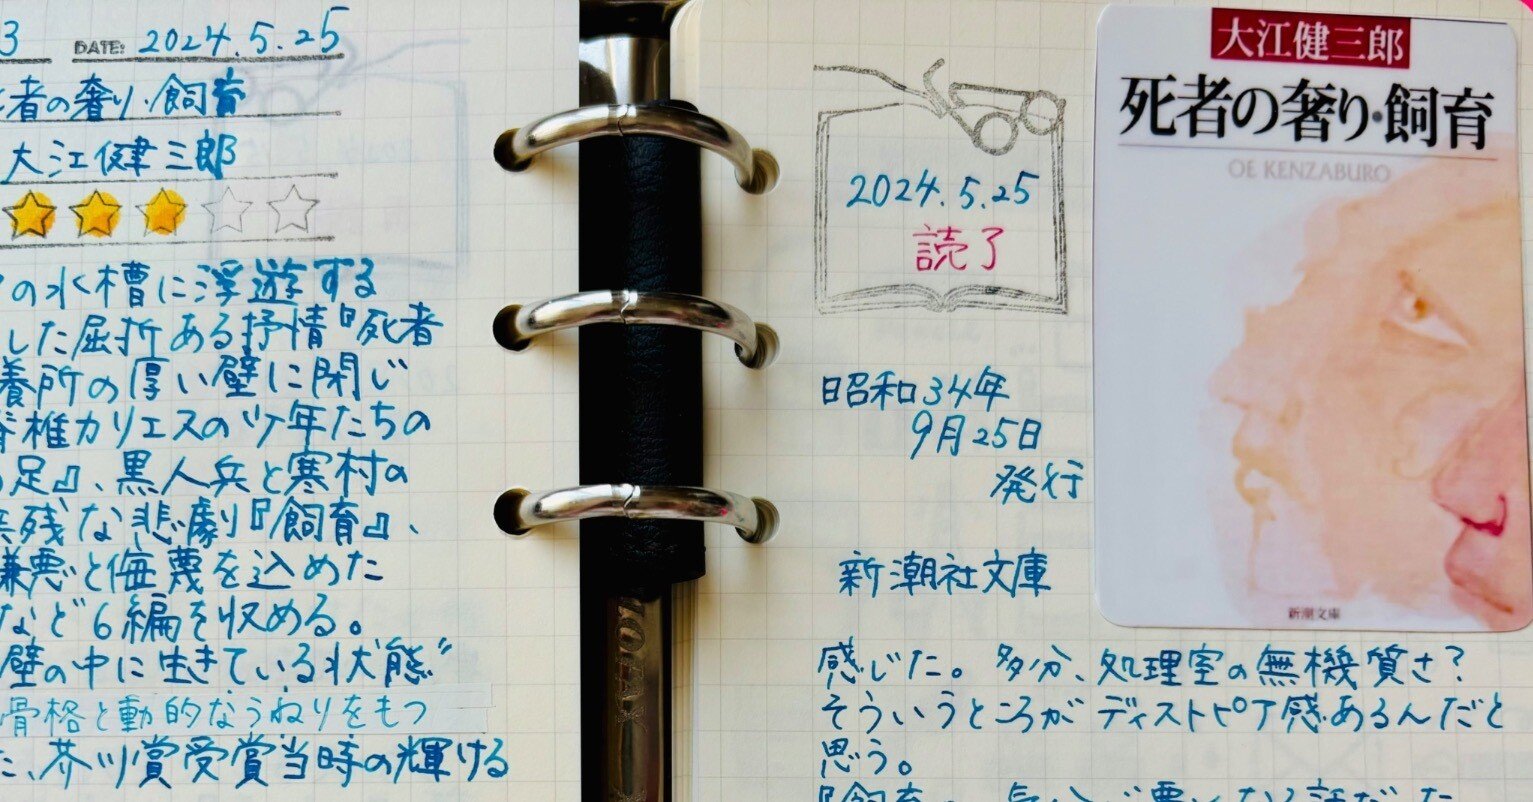 3 DATE: 2024.5.25
者の奢り・飼育
大江健三郎
の水槽に浮遊する
した屈折ある抒情『死者
養所の厚い壁に閉じ
脊椎カリエスの少年たちの
足』、黒人兵と寒村の
残な悲劇『飼育』、
嫌悪と侮蔑を込めた
など6編を収める。
壁の中に生きている状態”
骨格と動的なうねりをもつ
た、芥川賞受賞当時の輝ける
2024.5.25
読了
昭和34年
9月25日
発行
新潮社文庫
感じた。多分、処理室の無機質さ？
そういうところがディストピア感あるんだと
思う。
『飼育
大江健三郎
死者の奢り・飼育
OE KENZABURO
新潮文庫